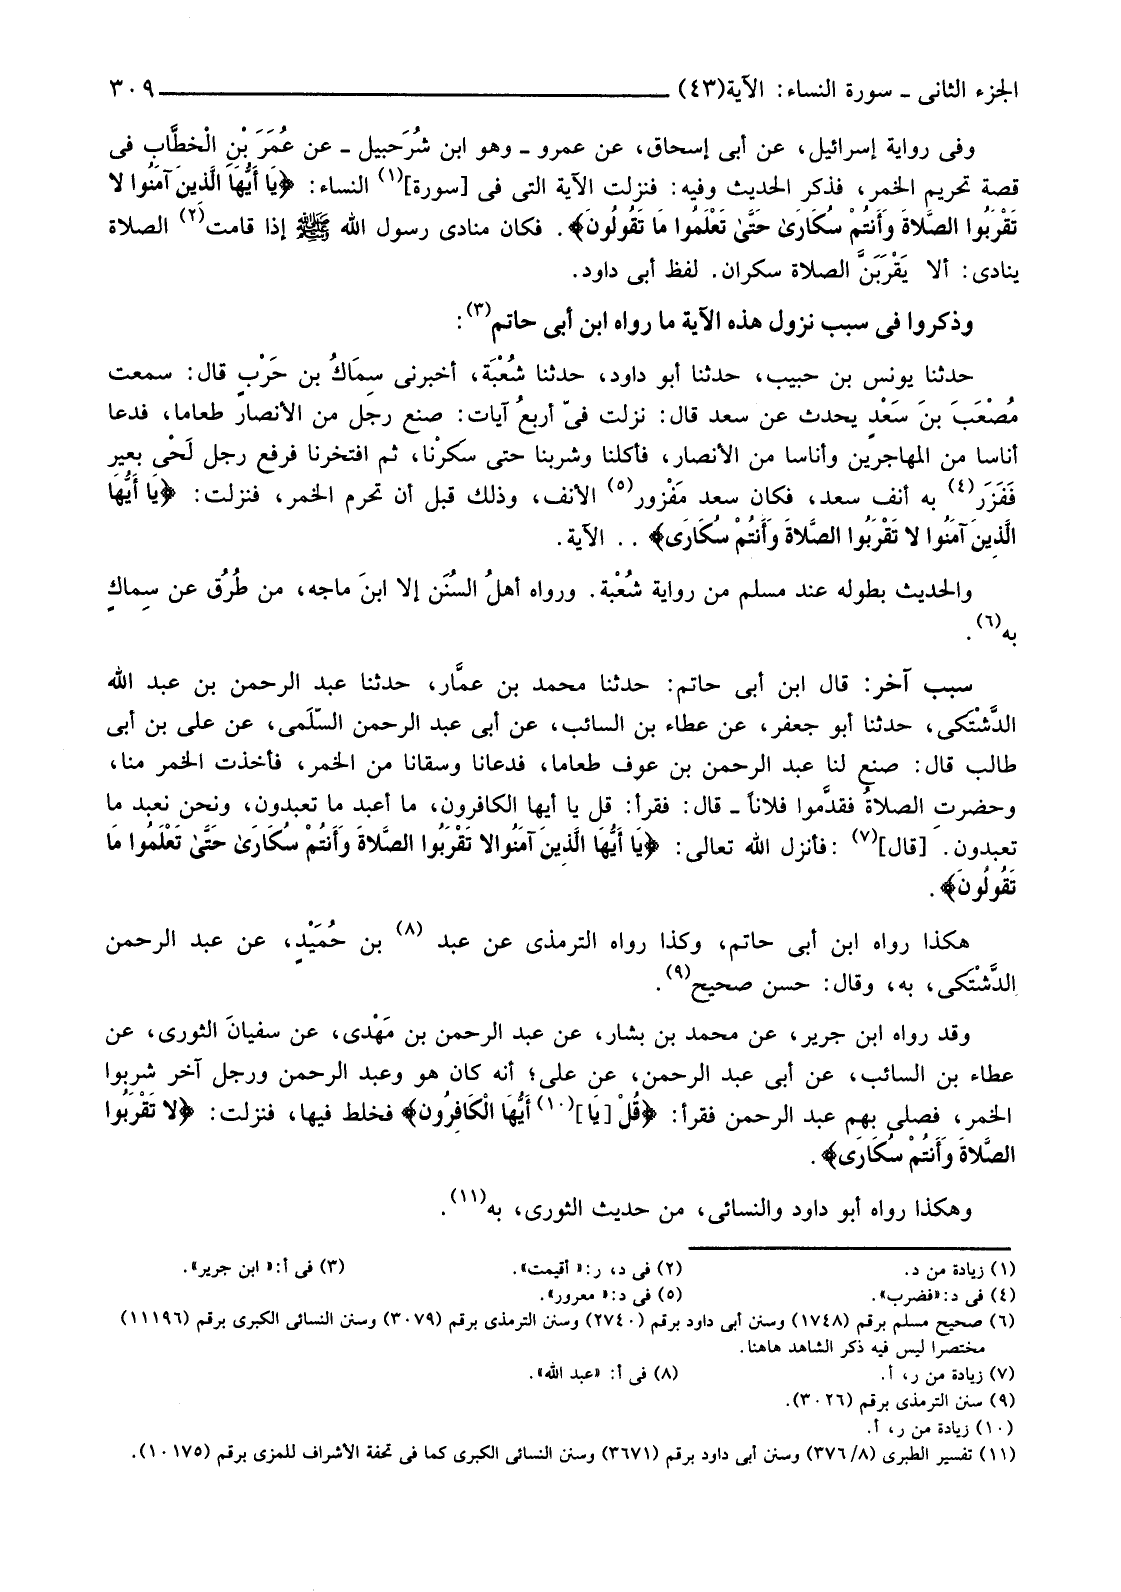 الجزء الثانى ـ سورة النساء: الآية(٤٣) ٣٠٩
وفى رواية إسرائيل، عن أبى إسحاق، عن عمرو ـ وهو ابن شُرَحبيل ـ عن عُمَرَ بْنِ الْخطَّاب فى
قصة تحريم الخمر، فذكر الحديث وفيه: فنزلت الآية التى فى [سورة](١) النساء: ﴿يَا أَيُّهَا الَّذِينَ آمَنُوا لا
تَقْرَبُوا الصَّلاةَ وَأَنتُمْ سُكَارَىٰ حَتَّىٰ تَعْلَمُوا مَا تَقُولُونَ﴾. فكان منادى رسول الله ﷺ إذا قامت(٢) الصلاة
ينادى: ألا يَقْرَبَنَّ الصلاة سكران. لفظ أبى داود.
وذكروا فى سبب نزول هذه الآية ما رواه ابن أبى حاتم(٣):
حدثنا يونس بن حبيب، حدثنا أبو داود، حدثنا شُعْبَة، أخبرنى سِمَاكُ بن حَرْبٍ قال: سمعت
مُصْعَبَ بنَ سَعْدٍ يحدث عن سعد قال: نزلت فىّ أربعُ آيات: صنع رجل من الأنصار طعاما، فدعا
أناسا من المهاجرين وأناسا من الأنصار، فأكلنا وشربنا حتى سكرْنا، ثم افتخرنا فرفع رجل لَحْى بعير
فَفَزَر(٤) به أنف سعد، فكان سعد مَفْزور(٥) الأنف، وذلك قبل أن تحرم الخمر، فنزلت: ﴿يَا أَيُّهَا
الَّذِينَ آمَنُوا لا تَقْرَبُوا الصَّلاةَ وَأَنتُمْ سُكَارَى﴾ .. الآية.
والحديث بطوله عند مسلم من رواية شُعْبة. ورواه أهلُ السُنَن إلا ابنَ ماجه، من طُرُق عن سِماكٍ
به(٦).
سبب آخر: قال ابن أبى حاتم: حدثنا محمد بن عمَّار، حدثنا عبد الرحمن بن عبد الله
الدَّشْتَكى، حدثنا أبو جعفر، عن عطاء بن السائب، عن أبى عبد الرحمن السّلَمى، عن على بن أبى
طالب قال: صنع لنا عبد الرحمن بن عوف طعاما، فدعانا وسقانا من الخمر، فأخذت الخمر منا،
وحضرتِ الصلاةُ فقدَّموا فلاناً ـ قال: فقرأ: قل يا أيها الكافرون، ما أعبد ما تعبدون، ونحن نعبد ما
تعبدون. [قال](٧) :فأنزل الله تعالى: ﴿يَا أَيُّهَا الَّذِينَ آمَنُوالا تَقْرَبُوا الصَّلاةَ وَأَنتُمْ سُكَارَىٰ حَتَّىٰ تَعْلَمُوا مَا
تَقُولُونَ﴾.
هكذا رواه ابن أبى حاتم، وكذا رواه الترمذى عن عبد (٨) بن حُمَيْدٍ، عن عبد الرحمن
الدَّشْتَكى، به، وقال: حسن صحيح(٩).
وقد رواه ابن جرير، عن محمد بن بشار، عن عبد الرحمن بن مَهْدى، عن سفيانَ الثورى، عن
عطاء بن السائب، عن أبى عبد الرحمن، عن على؛ أنه كان هو وعبد الرحمن ورجل آخر شربوا
الخمر، فصلى بهم عبد الرحمن فقرأ: ﴿قُلْ [يَا](١٠) أَيُّهَا الْكَافِرُون﴾ فخلط فيها، فنزلت: ﴿لا تَقْرَبُوا
الصَّلاةَ وَأَنتُمْ سُكَارَى﴾.
وهكذا رواه أبو داود والنسائى، من حديث الثورى، به(١١).
(١) زيادة من د. (٢) فى د، ر:« أقيمت». (٣) فى أ:« ابن جرير».
(٤) فى د:«فضرب». (٥) فى د:« معرور».
(٦) صحيح مسلم برقم (١٧٤٨) وسنن أبى داود برقم (٢٧٤٠) وسنن الترمذى برقم (٣٠٧٩) وسنن النسائى الكبرى برقم (١١١٩٦)
مختصرا ليس فيه ذكر الشاهد هاهنا.
(٧) زيادة من ر، أ. (٨) فى أ: «عبد الله».
(٩) سنن الترمذى برقم (٣٠٢٦).
(١٠) زيادة من ر، أ.
(١١) تفسير الطبرى (٣٧٦/٨) وسنن أبى داود برقم (٣٦٧١) وسنن النسائى الكبرى كما فى تحفة الأشراف للمزى برقم (١٠١٧٥).